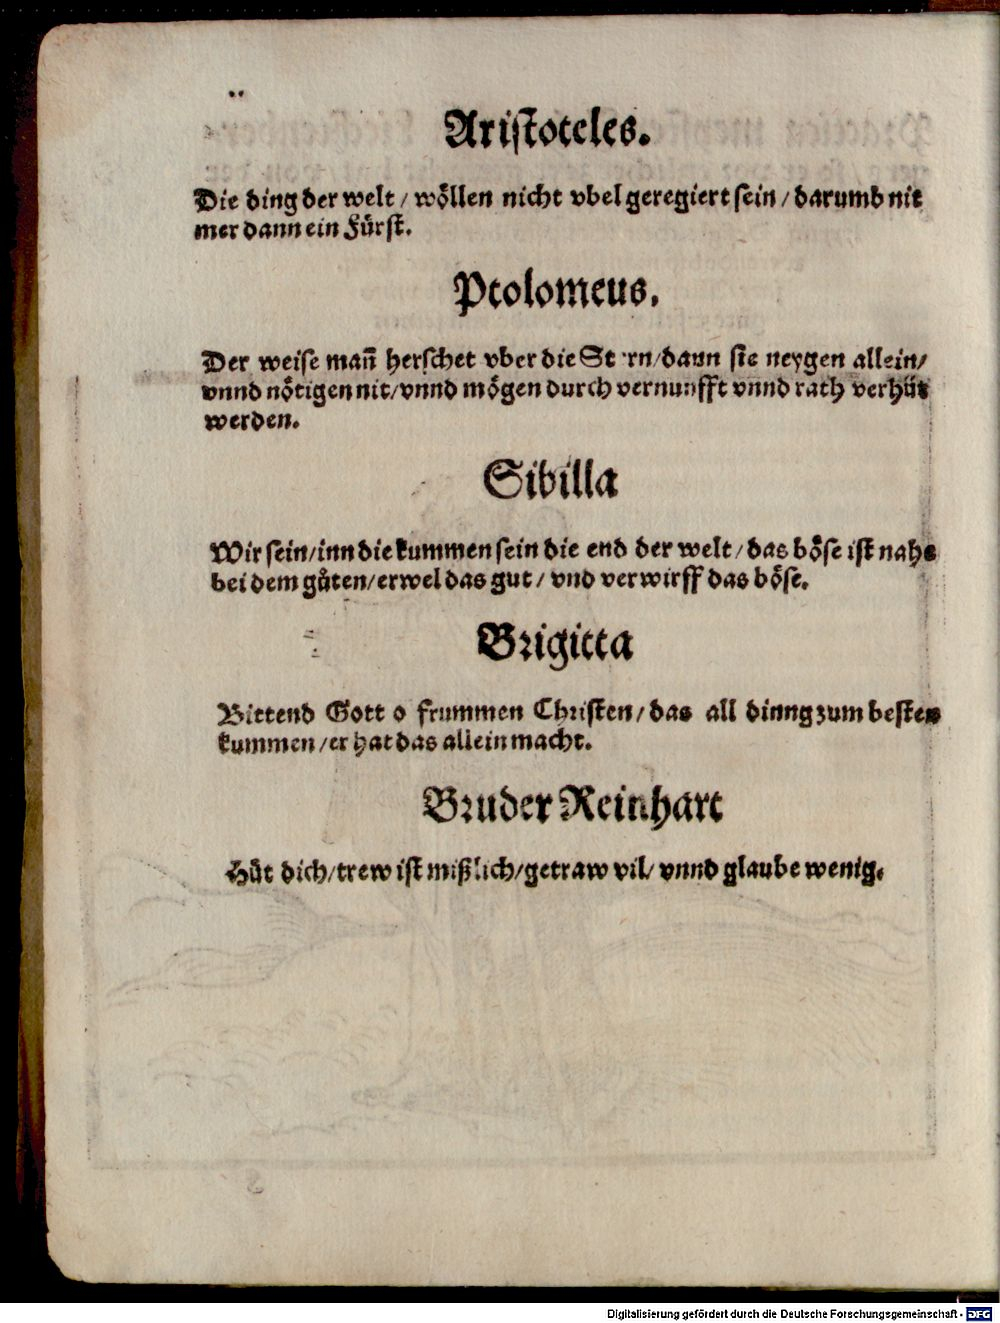 Aristoteles.
Die ding der welt / wöllen nicht vbel geregiert sein / darumb nit
mer dann ein Fürst.
Ptolomeus.
Der weise mañ herschet vber die Stern / dann sie neygen allein/
vnnd nötigen nit/ vnnd mögen durch vernunfft vnnd rath verhüt
werden.
Sibilla
Wir sein/ inn die kummen sein die end der welt / das böse ist nahe
bei dem gůten/ erwel das gut / vnd verwirff das böse.
Brigitta
Bittend Gott o frummen Christen/ das all dinng zum besten
kummen / er hat das allein macht.
Bruder Reinhart
Hüt dich/ trew ist mißlich/ getraw vil/ vnnd glaube wenig.
Digitalisierung gefördert durch die Deutsche Forschungsgemeinschaft - DFG